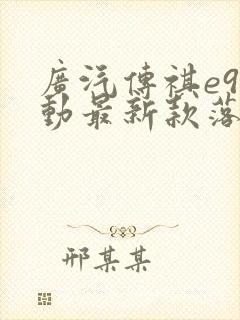 廣汽傳祺e9
動最新款落
邢某某